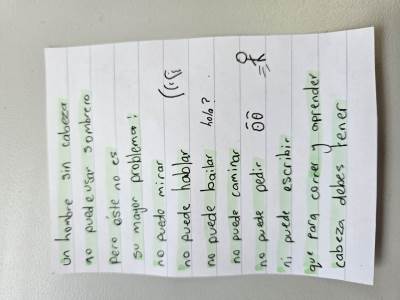 un hombre sin cabeza
no puede usar sombrero
pero éste no es
su mayor problema:
no puedo mirar
no puede hablar
no puede bailar hola?
no puede caminar
no puede pedir
ni puede escribir
que para correr y aprender
cabeza debes tener